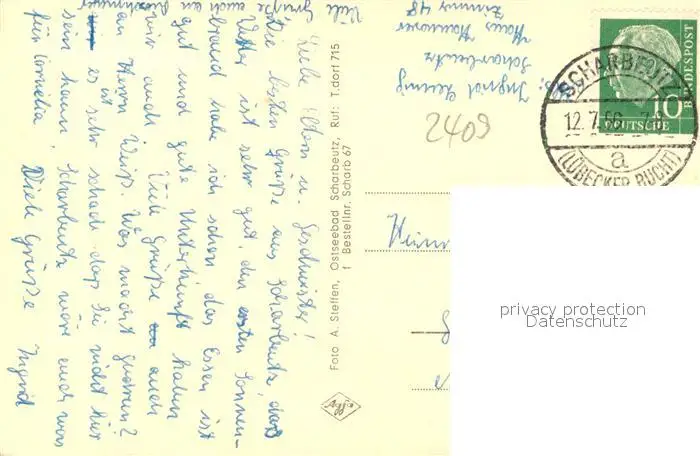 Liebe Eltern u. Geschwister!
Die besten Grüße aus Scharbeutz, das
Wetter ist sehr gut, den ersten Sonnen-
brand habe ich schon das Essen ist
gut und gute Unterkunft haben
wir auch. Viele Grüße auch
an Herrn Weiß. Was macht Gudrun?
es ist sehr schade das Sie nicht hier
sein kann. Scharbeutz wäre auch was
für Cornelia! Viele Grüße Ingrid
Viele Grüße auch an
Foto A. Steffen, Ostseebad Scharbeutz, Ruf: T.dorf 715
f Bestellnr. Scharb 67
Agfa
Ingrid
Scharbeutz
Haus Hannover
Zimmer 48
2409
SCHARBEUTZ
12.7.56
a
(LÜBECKER BUCHT)
10
DEUTSCHE
BUNDESPOST
privacy protection
Datenschutz